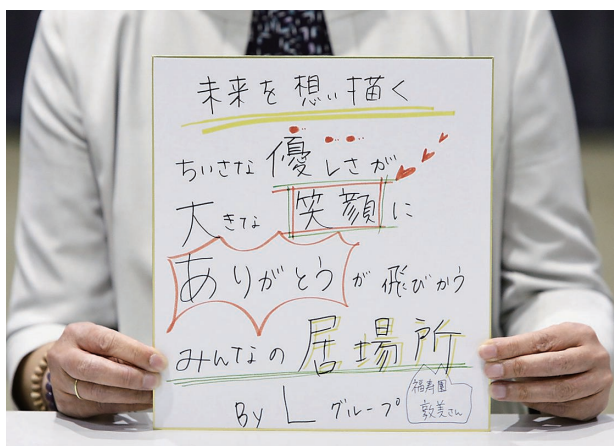 未来を想い描く
ちいさな優しさが
大きな笑顔に
ありがとうが飛びかう
みんなの居場所
By Lグループ
福寿園
敦美さん